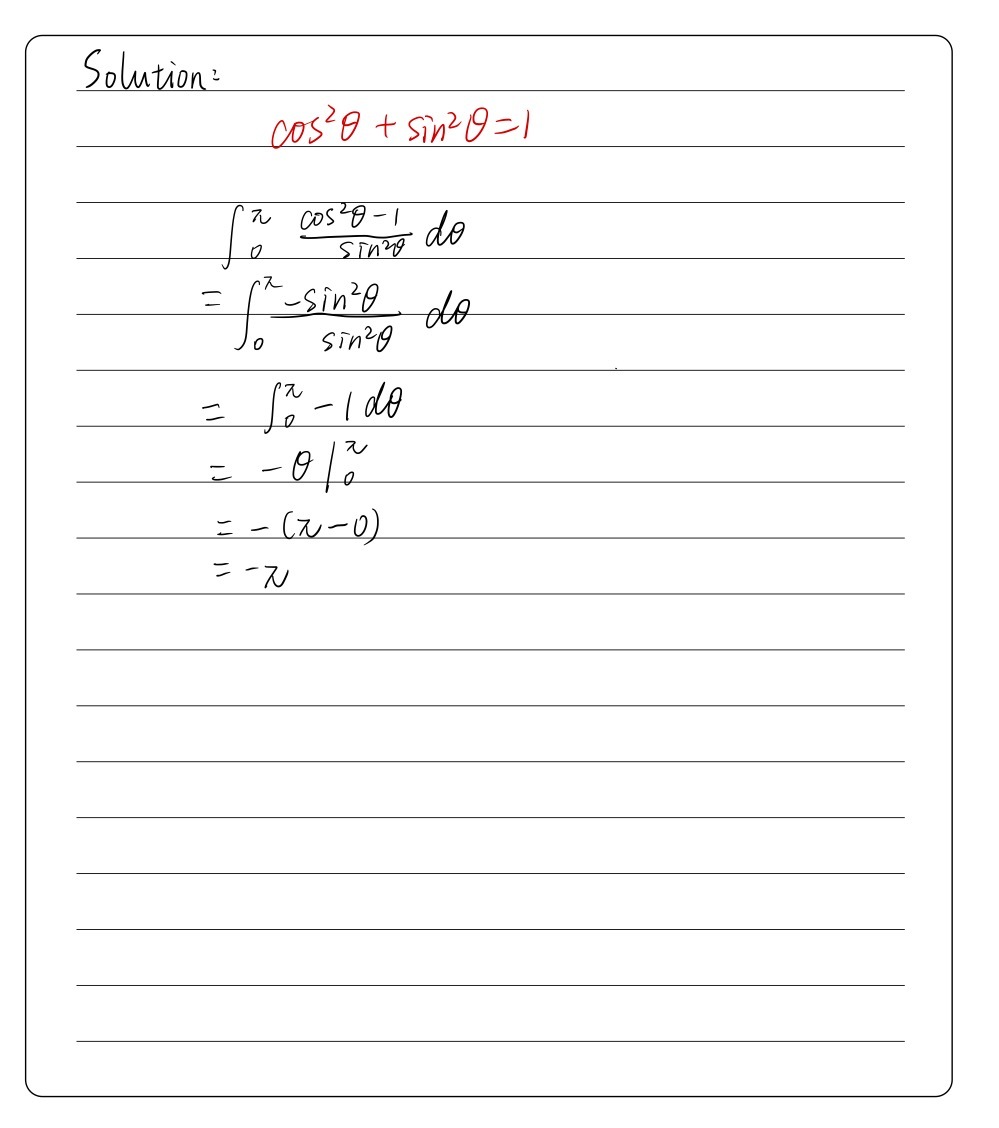 Solution:
cos²θ + sin²θ = 1
∫₀^π (cos²θ - 1)/(sin²θ) dθ
= ∫₀^π (-sin²θ)/(sin²θ) dθ
= ∫₀^π -1 dθ
= -θ |₀^π
= -(π - 0)
= -π